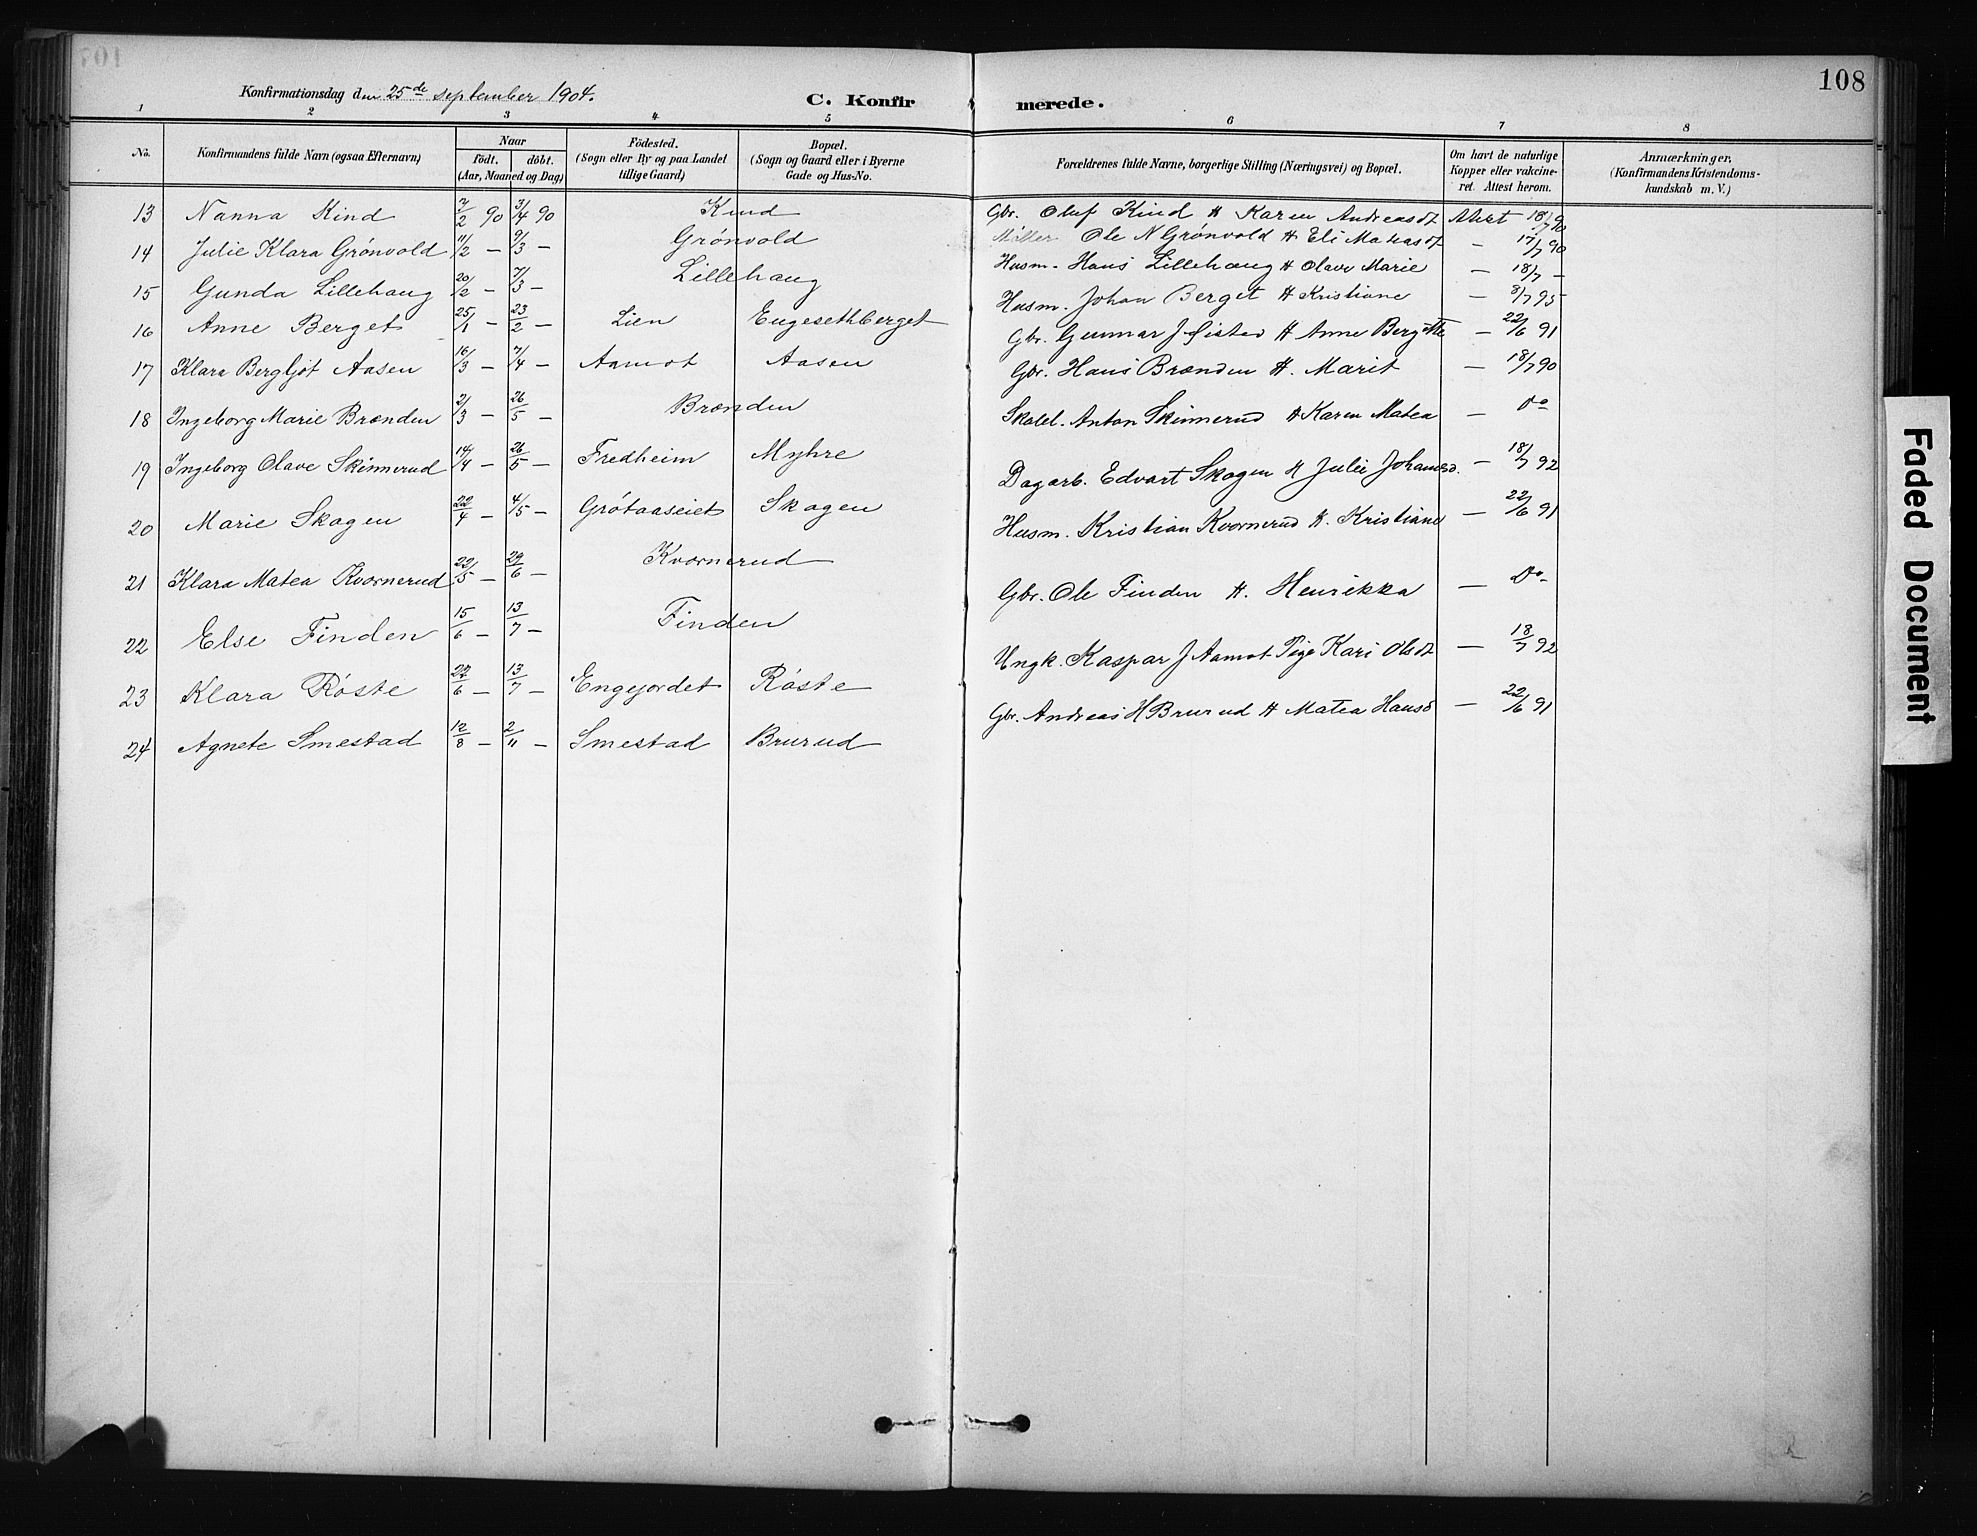 108
Konfirmationsdag den 25de september 1904.
C. Konfirmerede.
1 2 3 4 5 6 7 8
No. Konfirmandens fulde Navn (ogsaa Efternavn) Naar födt. döbt. (Aar, Maaned og Dag) Födested. (Sogn eller By og paa Landet tillige Gaard) Bopæl. (Sogn og Gaard eller i Byerne Gade og Hus-No. Forældrenes fulde Navne, borgerlige Stilling (Næringsvei) og Bopæl. Om havt de naturlige Kopper eller vakcineret. Attest herom. Anmærkninger, (Konfirmandens Kristendomskundskab m. V.)
13 Nanna Kind 7/2 90 3/4 90 Kind Gbr. Oluf Kind H Karen Andreasdt Attest 18/7 90
14 Julie Klara Grönvold 11/2 — 9/3 — Grönvold Möller Ole N Grönvold H Eli Mateasdt — 17/7 90
15 Gunda Lillehaug 20/2 — 7/3 — Lillehaug Husm. Hans Lillehaug H Olave Marie — 18/7 —
16 Anne Berget 25/1 — 23/2 — Lien Eugesethberget Husm. Johan Berget H Kristiane — 8/7 95
17 Klara Bergljot Aasen 16/3 — 7/4 — Aamot Aasen Gbr. Gunnar J Oisted H Anne Bergitte — 22/6 91
18 Ingeborg Marie Brænden 2/3 — 26/5 — Brænden Gbr. Hans Brænden H. Marit — 18/7 90
19 Ingeborg Olave Skinnerud 14/4 — 26/5 — Fredheim Myhre Skolel. Anton Skinnerud H Karen Matea — Do
20 Marie Skogen 22/4 — 4/5 — Grötaaseiet Skogen Dagarb. Edvart Skogen H Julie Johansd. — 18/7 92
21 Klara Matea Kvornerud 22/5 — 29/6 — Kvornerud Husm. Kristian Kvornerud H. Kristiane — 22/6 91
22 Else Finden 15/6 — 13/7 — Finden Gbr. Ole Finden H. Henrikka — Do
23 Klara Röste 27/6 — 13/7 — Engejordet Röste Ungk. Kaspar J Aamot Pige Kari Olsdt — 18/7 92
24 Agnete Smestad 12/8 — 2/11 — Smestad Brurud Gbr. Andreas H Brurud H Matea Hansd — 22/6 91
Faded Document